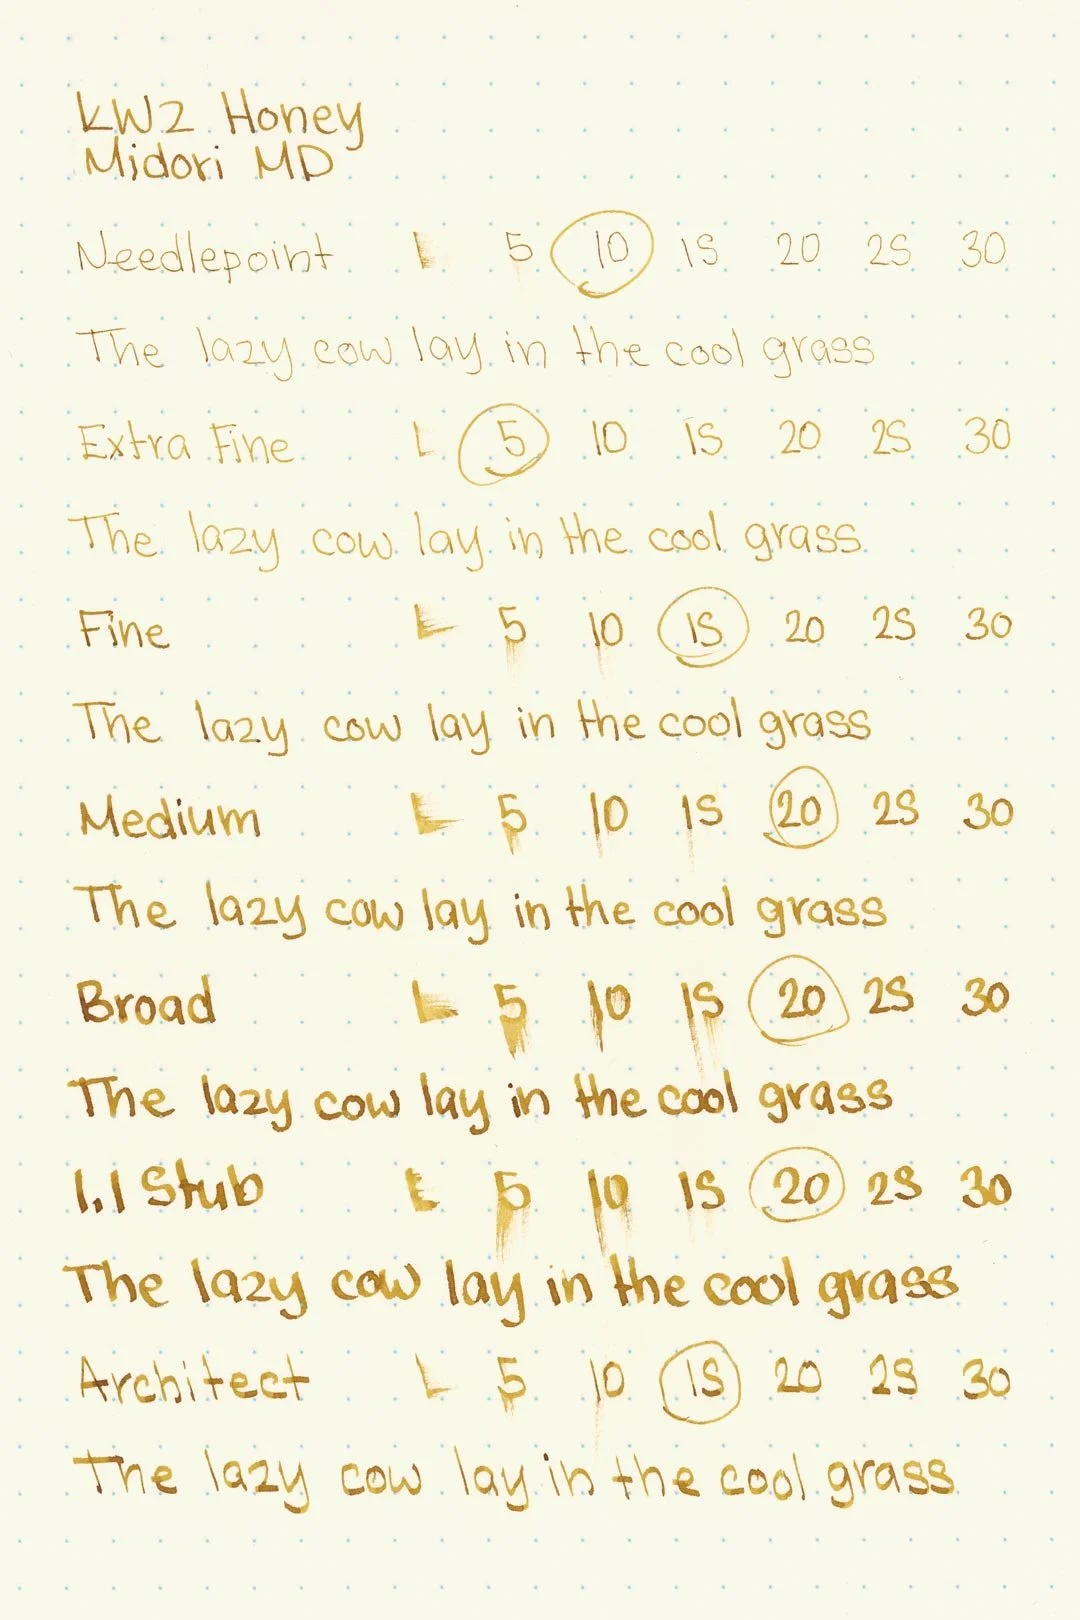 KWZ Honey
Midori MD
Needlepoint L 5 10 15 20 25 30
The lazy cow lay in the cool grass
Extra Fine L 5 10 15 20 25 30
The lazy cow lay in the cool grass
Fine L 5 10 15 20 25 30
The lazy cow lay in the cool grass
Medium L 5 10 15 20 25 30
The lazy cow lay in the cool grass
Broad L 5 10 15 20 25 30
The lazy cow lay in the cool grass
1.1 Stub L 5 10 15 20 25 30
The lazy cow lay in the cool grass
Architect L 5 10 15 20 25 30
The lazy cow lay in the cool grass